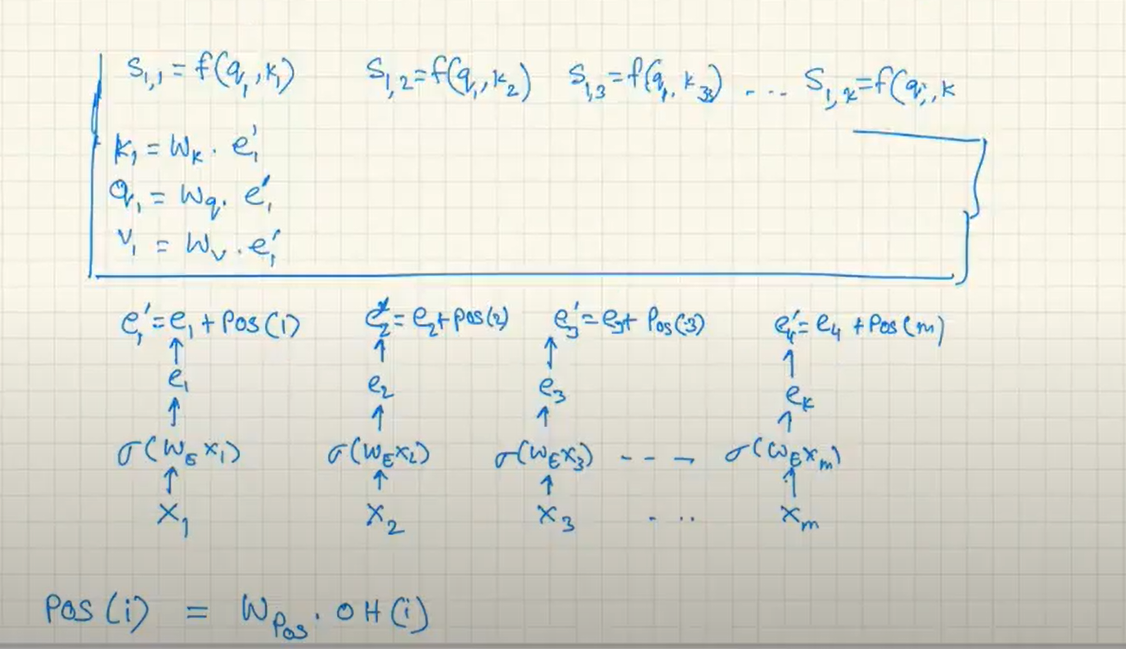 S₁,₁ = f(q₁, k₁) S₁,₂ = f(q₁, k₂) S₁,₃ = f(q₁, k₃) ... S₁,ₖ = f(q₁, k
k₁ = W_K · e₁'
q₁ = W_q · e₁'
v₁ = W_v · e₁'
e₁' = e₁ + pos(1) e₂' = e₂ + pos(2) e₃' = e₃ + Pos(3) e₄' = e₄ + Pos(m)
↑ ↑ ↑ ↑
e₁ e₂ e₃ eₖ
↑ ↑ ↑ ↑
σ(W_E x₁) σ(W_E x₂) σ(W_E x₃) --- σ(W_E xₘ)
↑ ↑ ↑ ↑
x₁ x₂ x₃ ... xₘ
Pos(i) = W_Pos · OH(i)